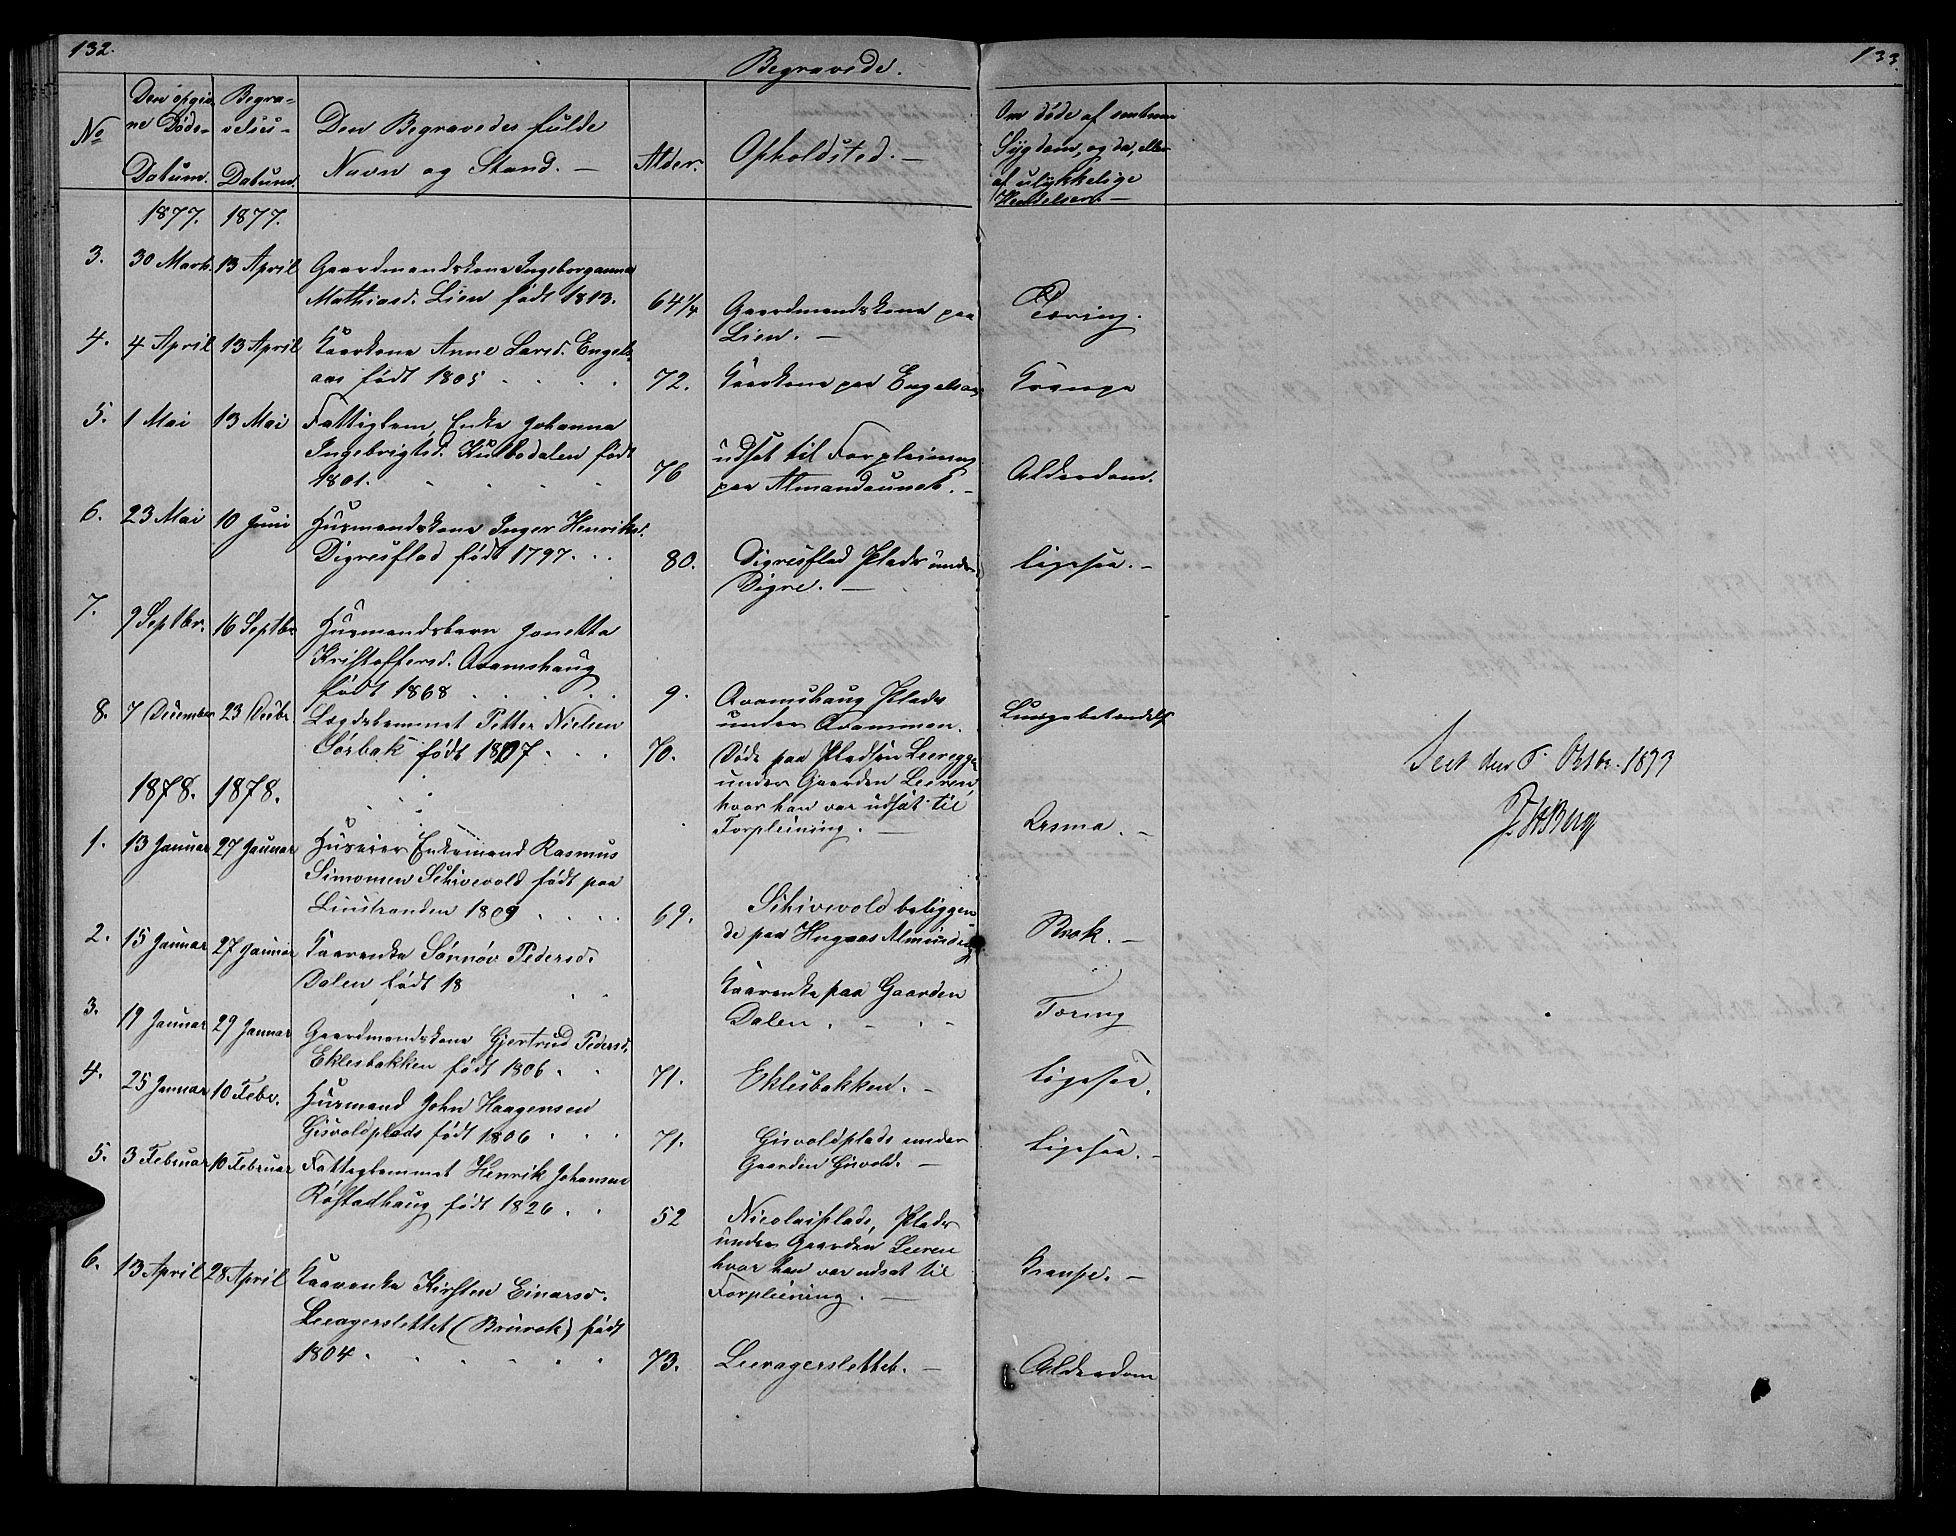 132.
Begravede.
133.
No
Den opgiv
ne Døds-
Datum.
Begra-
velses-
Datum.
Den Begravedes fulde
Navn og Stand. —
Alder.
Opholdsted. —
Om døde af
Sygdom, og da, eller
af ulykkelige
Hendelser. —
1877. 1877.
3. 30 Marts. 13 April Gaardmandskone Ingeborganna
Mathiasd. Lien født 1813. 64 1/4 Gaardmandskone paa
Lien. — Tæring.
4. 4 April 13 April Kaarkone Anne Larsd. Engels
aas født 1805 72. Kaarkone paa Engelsaas
5. 1 Mai 13 Mai Fattiglem, Enke Johanna
Ingebrigtsd. født
1801. 76 udsat til Forpleining
paa Alderdom.
6. 23 Mai 10 Juni Husmandskone Inger Henriksd.
Digresflad født 1797. 80. Digresflad Plads under
Digre. — Ligesaa. —
7. 9 Septbr. 16 Septbr Husmandsbarn Jonetta
Kristoffersd. Aramshaug
født 1868 9. Aramshaug Plads
under
8. 7 December 23 Decbr Lægdslemmet Petter Nielsen
Sørbak født 1807 70. Døde paa Pladsen Leeregge
under Gaarden Leeren,
hvor han var udsat til
Forpleining. —
Seet den 6. Octbr. 1877
J. H. Berg
1878. 1878.
1. 13 Januar 27 Januar Huseier Enkemand Rasmus
Simonsen Skivevold født paa
1809 69. Skivevold beliggen
de paa Brok. —
2. 15 Januar 27 Januar Kaarenke Sønnøv Pedersd.
Dalen født 18 Kaarenke paa Gaarden
Dalen. Tæring
3. 19 Januar 29 Januar Gaardmandskone Gjertrud Pedersd.
Eklesbakken født 1806 71. Eklesbakken. — Ligesaa.
4. 25 Januar 10 Febr. Husmand John Haagensen
Gisvoldplads født 1806 71. Gisvoldplads under
Gaarden Gisvold. — Ligesaa. —
5. 3 Februar 10 Februar Fattiglemmet Henrik Johansen
Røstadhaug født 1826 52 Nicolaiplads, Plads
under Gaarden Leeren
hvor han var udsat til
Forpleining. —
6. 13 April 28 April Kaarenke Kirsten Einarsd.
Leeragerslettet (Brurok) født
1804 73. Leeragerslettet. — Alderdom